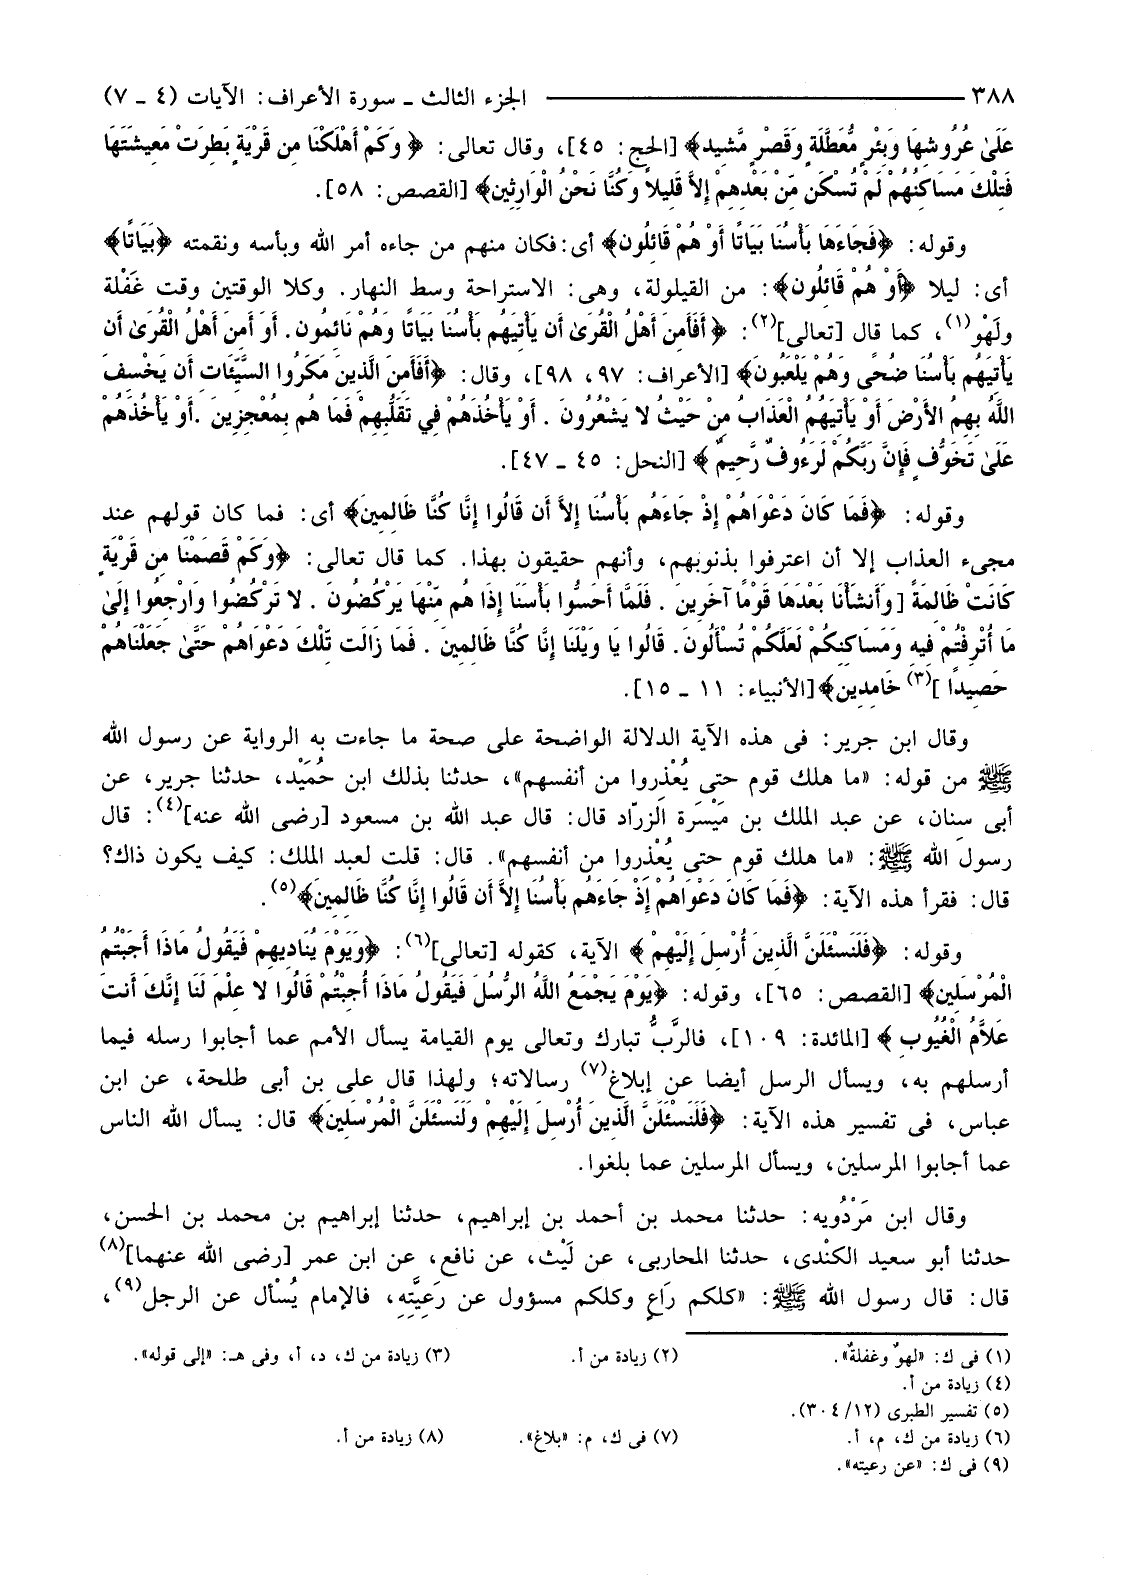 ٣٨٨ ــــــــــــــــ الجزء الثالث ـ سورة الأعراف: الآيات (٤ ـ ٧)
عَلَىٰ عُرُوشِهَا وَبِئْرٍ مُّعَطَّلَةٍ وَقَصْرٍ مَّشِيدٍ﴾ [الحج: ٤٥]، وقال تعالى: ﴿ وَكَمْ أَهْلَكْنَا مِن قَرْيَةٍ بَطِرَتْ مَعِيشَتَهَا
فَتِلْكَ مَسَاكِنُهُمْ لَمْ تُسْكَن مِّنْ بَعْدِهِمْ إِلاَّ قَلِيلاً وَكُنَّا نَحْنُ الْوَارِثِين﴾ [القصص: ٥٨].
وقوله: ﴿فَجَاءَهَا بَأْسُنَا بَيَاتًا أَوْ هُمْ قَائِلُون﴾ أى: فكان منهم من جاءه أمر الله وبأسه ونقمته ﴿بَيَاتًا﴾
أى: ليلا ﴿أَوْ هُمْ قَائِلُون﴾: من القيلولة، وهى: الاستراحة وسط النهار. وكلا الوقتين وقت غَفْلة
ولَهْو(١)، كما قال [تعالى](٢): ﴿ أَفَأَمِنَ أَهْلُ الْقُرَىٰ أَن يَأْتِيَهُم بَأْسُنَا بَيَاتًا وَهُمْ نَائِمُون. أَوَ أَمِنَ أَهْلُ الْقُرَىٰ أَن
يَأْتِيَهُم بَأْسُنَا ضُحًى وَهُمْ يَلْعَبُون﴾ [الأعراف: ٩٧، ٩٨]، وقال: ﴿أَفَأَمِنَ الَّذِينَ مَكَرُوا السَّيِّئَاتِ أَن يَخْسِفَ
اللَّهُ بِهِمُ الأَرْضَ أَوْ يَأْتِيَهُمُ الْعَذَابُ مِنْ حَيْثُ لا يَشْعُرُونَ . أَوْ يَأْخُذَهُمْ فِي تَقَلُّبِهِمْ فَمَا هُم بِمُعْجِزِينَ .أَوْ يَأْخُذَهُمْ
عَلَىٰ تَخَوُّفٍ فَإِنَّ رَبَّكُمْ لَرَءُوفٌ رَّحِيمٌ ﴾ [النحل: ٤٥ ـ ٤٧].
وقوله: ﴿فَمَا كَانَ دَعْوَاهُمْ إِذْ جَاءَهُم بَأْسُنَا إِلاَّ أَن قَالُوا إِنَّا كُنَّا ظَالِمِينَ﴾ أى: فما كان قولهم عند
مجىء العذاب إلا أن اعترفوا بذنوبهم، وأنهم حقيقون بهذا. كما قال تعالى: ﴿وَكَمْ قَصَمْنَا مِن قَرْيَةٍ
كَانَتْ ظَالِمَةً [وَأَنشَأْنَا بَعْدَهَا قَوْمًا آخَرِينَ . فَلَمَّا أَحَسُّوا بَأْسَنَا إِذَا هُم مِّنْهَا يَرْكُضُونَ . لا تَرْكُضُوا وَارْجِعُوا إِلَىٰ
مَا أُتْرِفْتُمْ فِيهِ وَمَسَاكِنِكُمْ لَعَلَّكُمْ تُسْأَلُون. قَالُوا يَا وَيْلَنَا إِنَّا كُنَّا ظَالِمِينَ . فَمَا زَالَت تِلْكَ دَعْوَاهُمْ حَتَّىٰ جَعَلْنَاهُمْ
حَصِيدًا ](٣) خَامِدِين﴾ [الأنبياء: ١١ ـ ١٥].
وقال ابن جرير: فى هذه الآية الدلالة الواضحة على صحة ما جاءت به الرواية عن رسول الله
ﷺ من قوله: «ما هلك قوم حتى يُعْذِروا من أنفسهم»، حدثنا بذلك ابن حُمَيْد، حدثنا جرير، عن
أبى سِنان، عن عبد الملك بن مَيْسَرة الزرّاد قال: قال عبد الله بن مسعود [رضى الله عنه](٤): قال
رسول الله ﷺ: «ما هلك قوم حتى يُعْذِروا من أنفسهم». قال: قلت لعبد الملك: كيف يكون ذاك؟
قال: فقرأ هذه الآية: ﴿فَمَا كَانَ دَعْوَاهُمْ إِذْ جَاءَهُم بَأْسُنَا إِلاَّ أَن قَالُوا إِنَّا كُنَّا ظَالِمِينَ﴾(٥).
وقوله: ﴿فَلَنَسْئَلَنَّ الَّذِينَ أُرْسِلَ إِلَيْهِمْ ﴾ الآية، كقوله [تعالى](٦): ﴿وَيَوْمَ يُنَادِيهِمْ فَيَقُولُ مَاذَا أَجَبْتُمُ
الْمُرْسَلِين﴾ [القصص: ٦٥]، وقوله: ﴿يَوْمَ يَجْمَعُ اللَّهُ الرُّسُلَ فَيَقُولُ مَاذَا أُجِبْتُمْ قَالُوا لا عِلْمَ لَنَا إِنَّكَ أَنتَ
عَلاَّمُ الْغُيُوبِ ﴾ [المائدة: ١٠٩]، فالرَّبُّ تبارك وتعالى يوم القيامة يسأل الأمم عما أجابوا رسله فيما
أرسلهم به، ويسأل الرسل أيضا عن إبلاغ(٧) رسالاته؛ ولهذا قال على بن أبى طلحة، عن ابن
عباس، فى تفسير هذه الآية: ﴿فَلَنَسْئَلَنَّ الَّذِينَ أُرْسِلَ إِلَيْهِمْ وَلَنَسْئَلَنَّ الْمُرْسَلِينَ﴾ قال: يسأل الله الناس
عما أجابوا المرسلين، ويسأل المرسلين عما بلغوا.
وقال ابن مَرْدُويه: حدثنا محمد بن أحمد بن إبراهيم، حدثنا إبراهيم بن محمد بن الحسن،
حدثنا أبو سعيد الكِنْدى، حدثنا المحاربى، عن لَيْث، عن نافع، عن ابن عمر [رضى الله عنهما](٨)
قال: قال رسول الله ﷺ: «كلكم رَاعٍ وكلكم مسؤول عن رَعِيَّتِه، فالإمام يُسْأل عن الرجل(٩)،
(١) فى ك: «لهوٌ وغفلةٌ». (٢) زيادة من أ. (٣) زيادة من ك، د، أ، وفى هـ: «إلى قوله».
(٤) زيادة من أ.
(٥) تفسير الطبرى (١٢/ ٣٠٤).
(٦) زيادة من ك، م، أ. (٧) فى ك، م: «بلاغ». (٨) زيادة من أ.
(٩) فى ك: «عن رعيته».